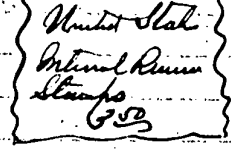 United States
Internal Revenue
Stamps
3 50